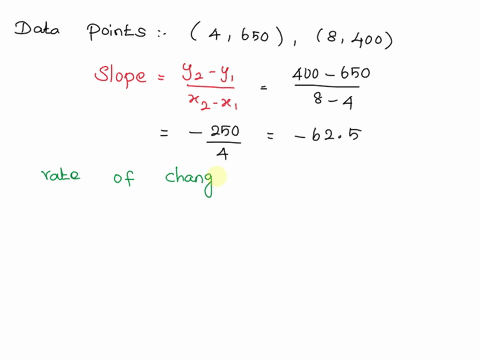 Data Points :- (4, 650), (8, 400)
Slope = y₂ - y₁ / x₂ - x₁ = 400 - 650 / 8 - 4
= - 250 / 4 = - 62.5
rate of chang